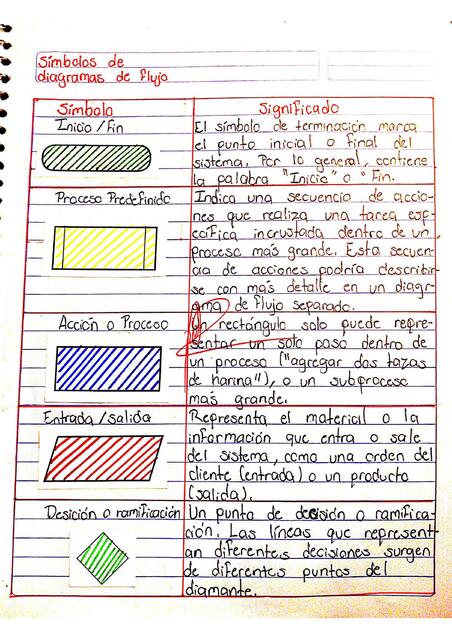 Símbolos de
diagramas de flujo
Símbolo
Significado
Inicio / Fin
El símbolo de terminación marca
el punto inicial o final del
sistema. Por lo general, contiene
la palabra "Inicio" o "Fin.
Proceso Predefinido
Indica una secuencia de accio-
nes que realiza una tarea esp-
ecífica incrustada dentro de un
proceso más grande. Esta secuen-
cia de acciones podría describir-
se con más detalle en un diagr-
ama de flujo separado.
Acción o Proceso
Un rectángulo solo puede repre-
sentar un solo paso dentro de
un proceso ("agregar dos tazas
de harina"), o un subproceso
más grande.
Entrada / salida
Representa el material o la
información que entra o sale
del sistema, como una orden del
cliente (entrada) o un producto
(salida).
Desición o ramificación
Un punto de decisión o ramifica-
ción. Las líneas que represent-
an diferentes decisiones surgen
de diferentes puntos del
diamante.